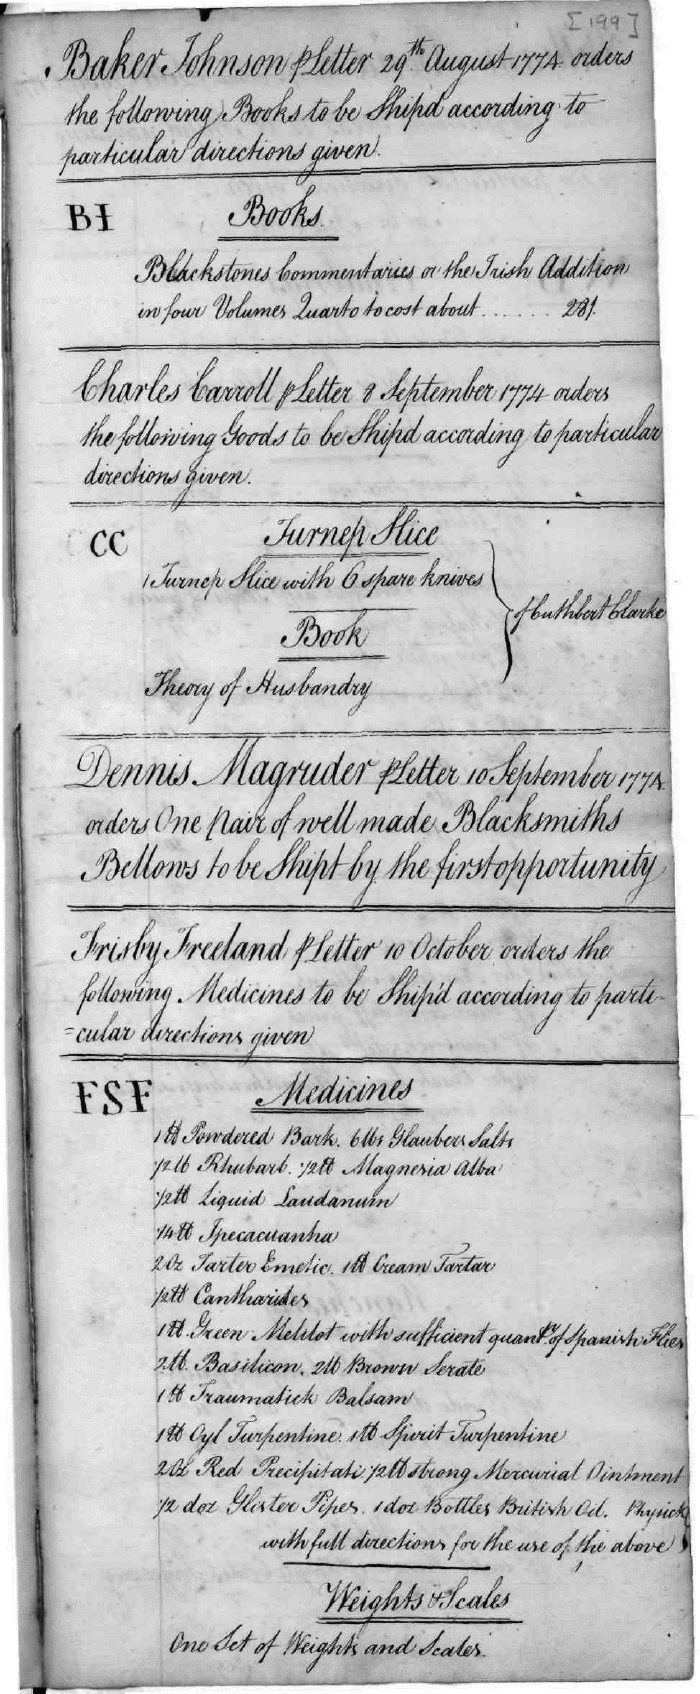 [199]
Baker Johnson ⅌ Letter 29th August 1774 orders
the following Books to be Ship'd according to
particular directions given.
BI Books
Blackstones Commentaries or the Irish Addition
in four Volumes Quarto to cost about ...... 28/.
Charles Carroll ⅌ Letter 8 September 1774 orders
the following Goods to be Ship'd according to particular
directions given.
CC Turnep Slice
1 Turnep Slice with 6 spare knives
of Cuthbert Clarke
Book
Theory of Husbandry
Dennis Magruder ⅌ Letter 10 September 1774
orders One pair of well made Blacksmiths
Bellows to be Shipt by the first opportunity
Frisby Freeland ⅌ Letter 10 October orders the
following Medicines to be Ship'd according to parti-
=cular directions given
FSF Medicines
1 lb Powdered Bark. 6 lbs Glaubers Salts
1/2 lb Rhubarb. 1/2 lb Magnesia Alba
1/2 lb Liquid Laudanum
1/4 lb Ipecacuanha
2 Oz Tarter Emetic. 1 lb Cream Tartar
1/2 lb Cantharides
1 lb Green Melilot with sufficient quanty. of Spanish Flies
2 lb. Basilicon. 2 lb Brown Serate
1 lb Traumatick Balsam
1 lb Oyl Turpentine. 1 lb Spirit Turpentine
2 Oz Red Precipitati 1/2 lb strong Mercurial Ointment
1/2 doz Glister Pipes. 1 doz Bottles British Oil. Physick
with full directions for the use of the above
Weights & Scales
One Set of Weights and Scales.